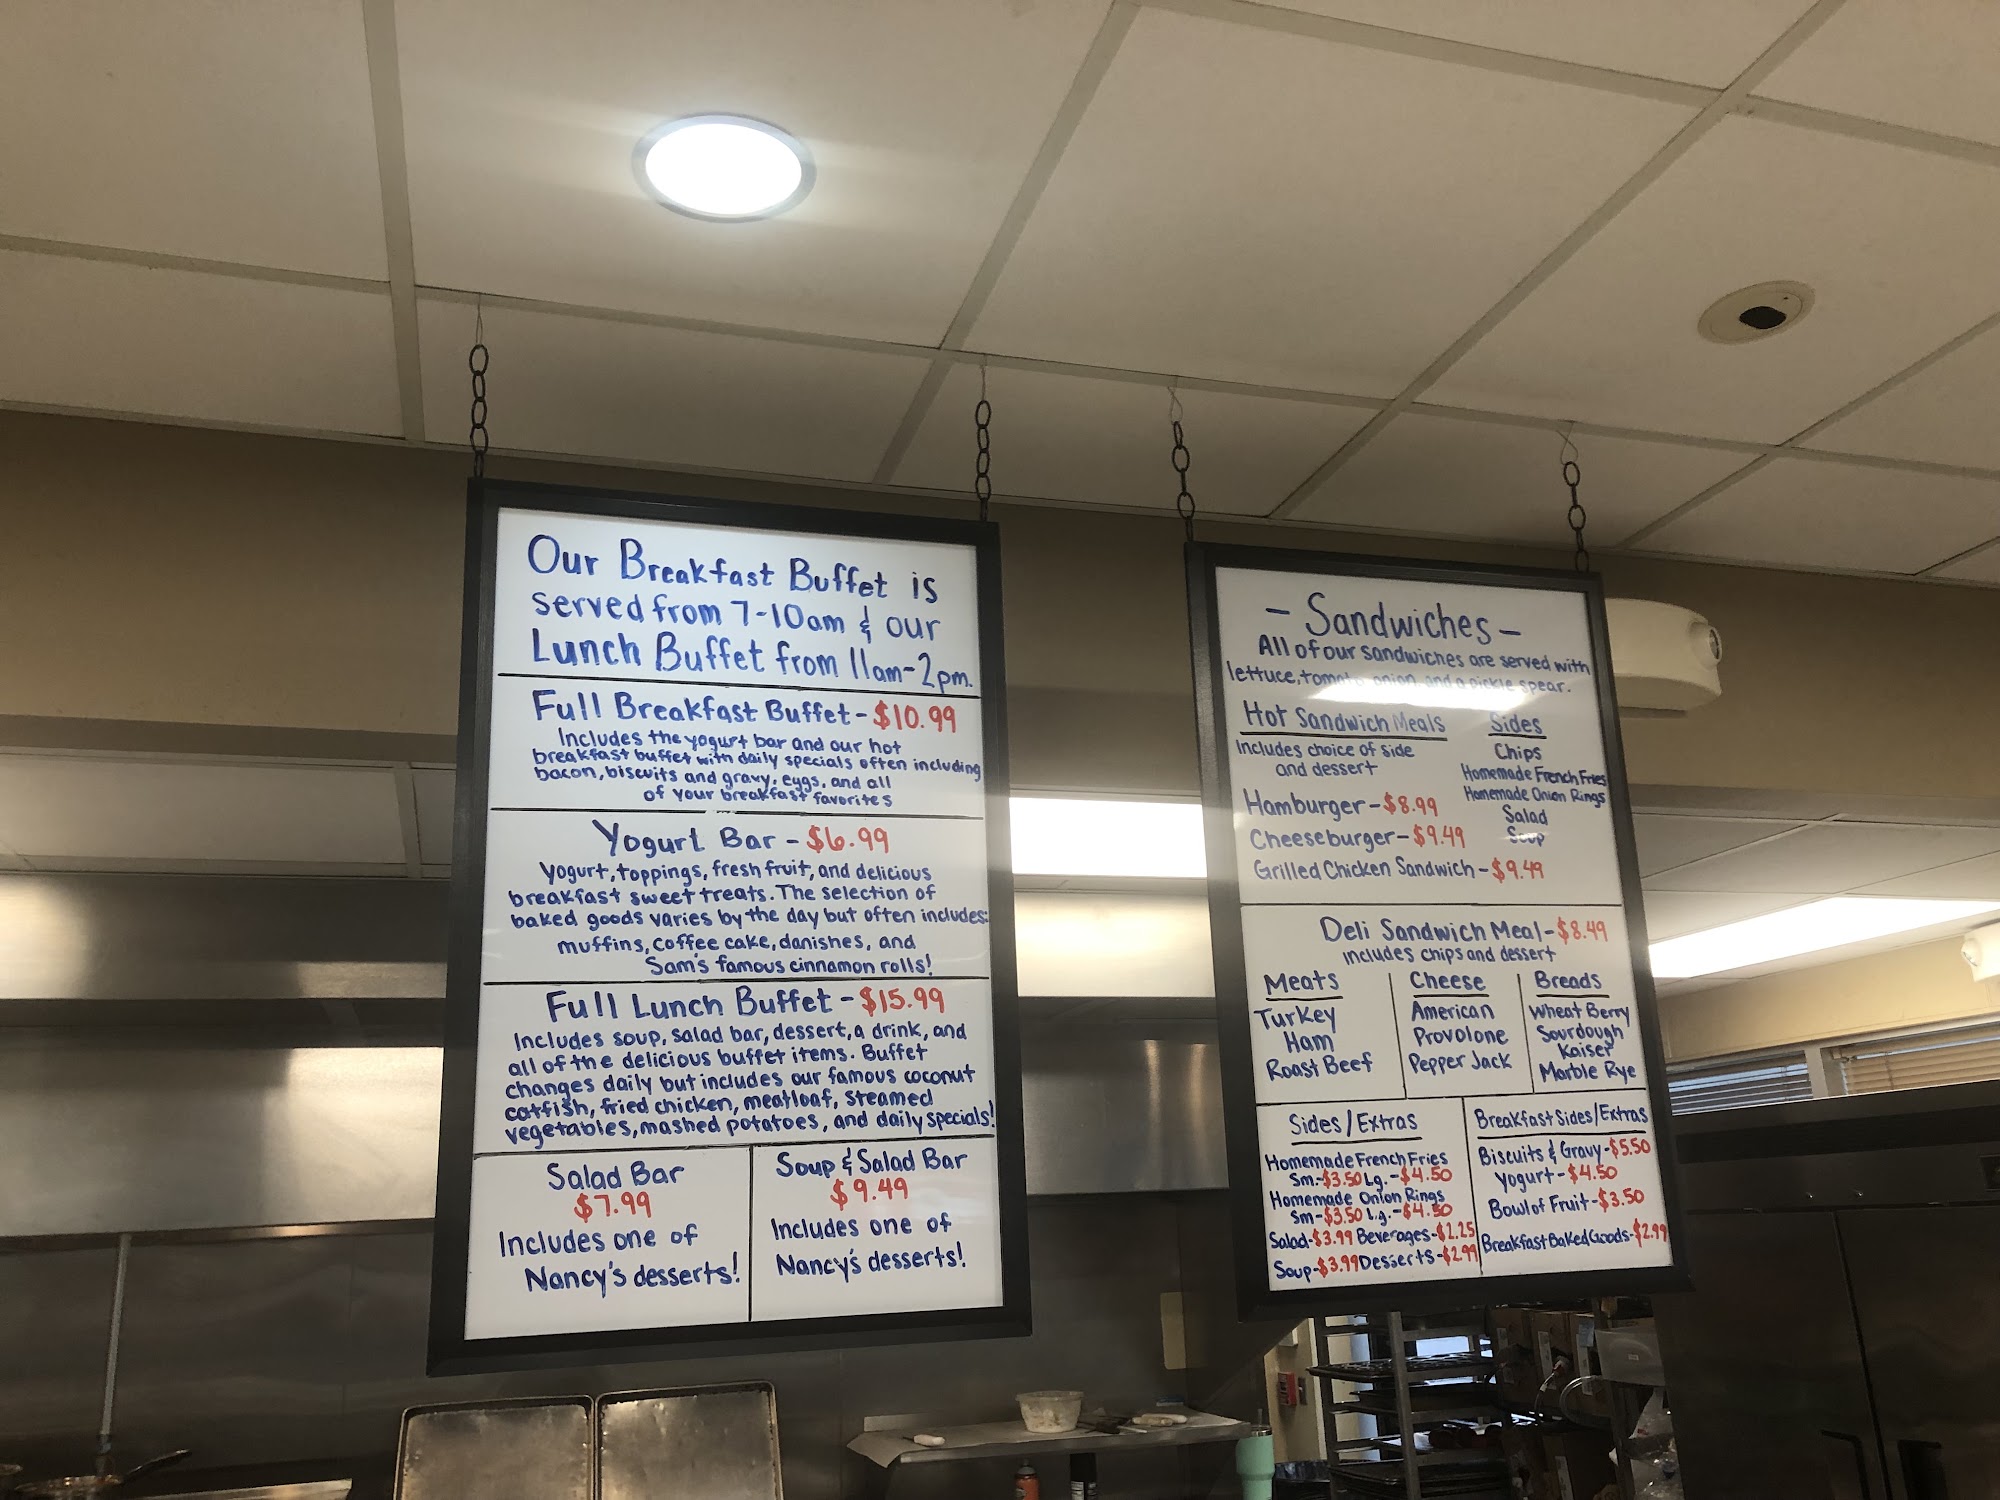 Our Breakfast Buffet is
served from 7-10am & our
Lunch Buffet from 11am-2pm.
Full Breakfast Buffet - $10.99
Includes the yogurt bar and our hot
breakfast buffet with daily specials often including
bacon, biscuits and gravy, eggs, and all
of your breakfast favorites
Yogurt Bar - $6.99
Yogurt, toppings, fresh fruit, and delicious
breakfast sweet treats. The selection of
baked goods varies by the day but often includes:
muffins, coffee cake, danishes, and
Sam's famous cinnamon rolls!
Full Lunch Buffet - $15.99
Includes soup, salad bar, dessert, a drink, and
all of the delicious buffet items. Buffet
changes daily but includes our famous coconut
catfish, fried chicken, meatloaf, steamed
vegetables, mashed potatoes, and daily specials!
Salad Bar
$7.99
Includes one of
Nancy's desserts!
Soup & Salad Bar
$9.49
Includes one of
Nancy's desserts!
- Sandwiches -
All of our sandwiches are served with
lettuce, tomato, onion, and a pickle spear.
Hot Sandwich Meals
Includes choice of side
and dessert
Hamburger - $8.99
Cheeseburger - $9.49
Grilled Chicken Sandwich - $9.49
Sides
Chips
Homemade French Fries
Homemade Onion Rings
Salad
Soup
Deli Sandwich Meal - $8.49
includes chips and dessert
Meats
Turkey
Ham
Roast Beef
Cheese
American
Provolone
Pepper Jack
Breads
Wheat Berry
Sourdough
Kaiser
Marble Rye
Sides/Extras
Homemade French Fries
Sm. - $3.50 Lg. - $4.50
Homemade Onion Rings
Sm - $3.50 Lg. - $4.50
Salad - $3.99 Beverages - $2.25
Soup - $3.99 Desserts - $2.99
Breakfast Sides/Extras
Biscuits & Gravy - $5.50
Yogurt - $4.50
Bowl of Fruit - $3.50
Breakfast Baked Goods - $2.99